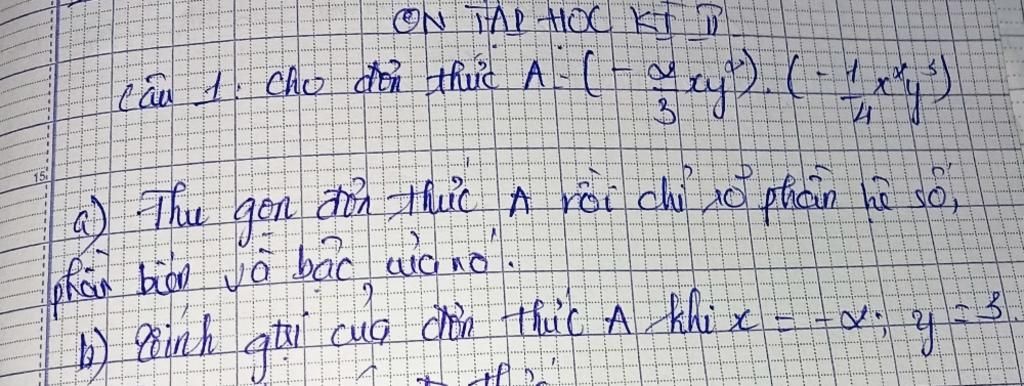 ÔN TẬP HỌC KÌ II
Câu 1: Cho đơn thức A = (-2/3 xy²). (-1/4 x²y³)
a) Thu gọn đơn thức A rồi chỉ rõ phần hệ số,
phần biến và bậc của nó.
b) Tính gtrị của đơn thức A khi x = -2; y = 3.